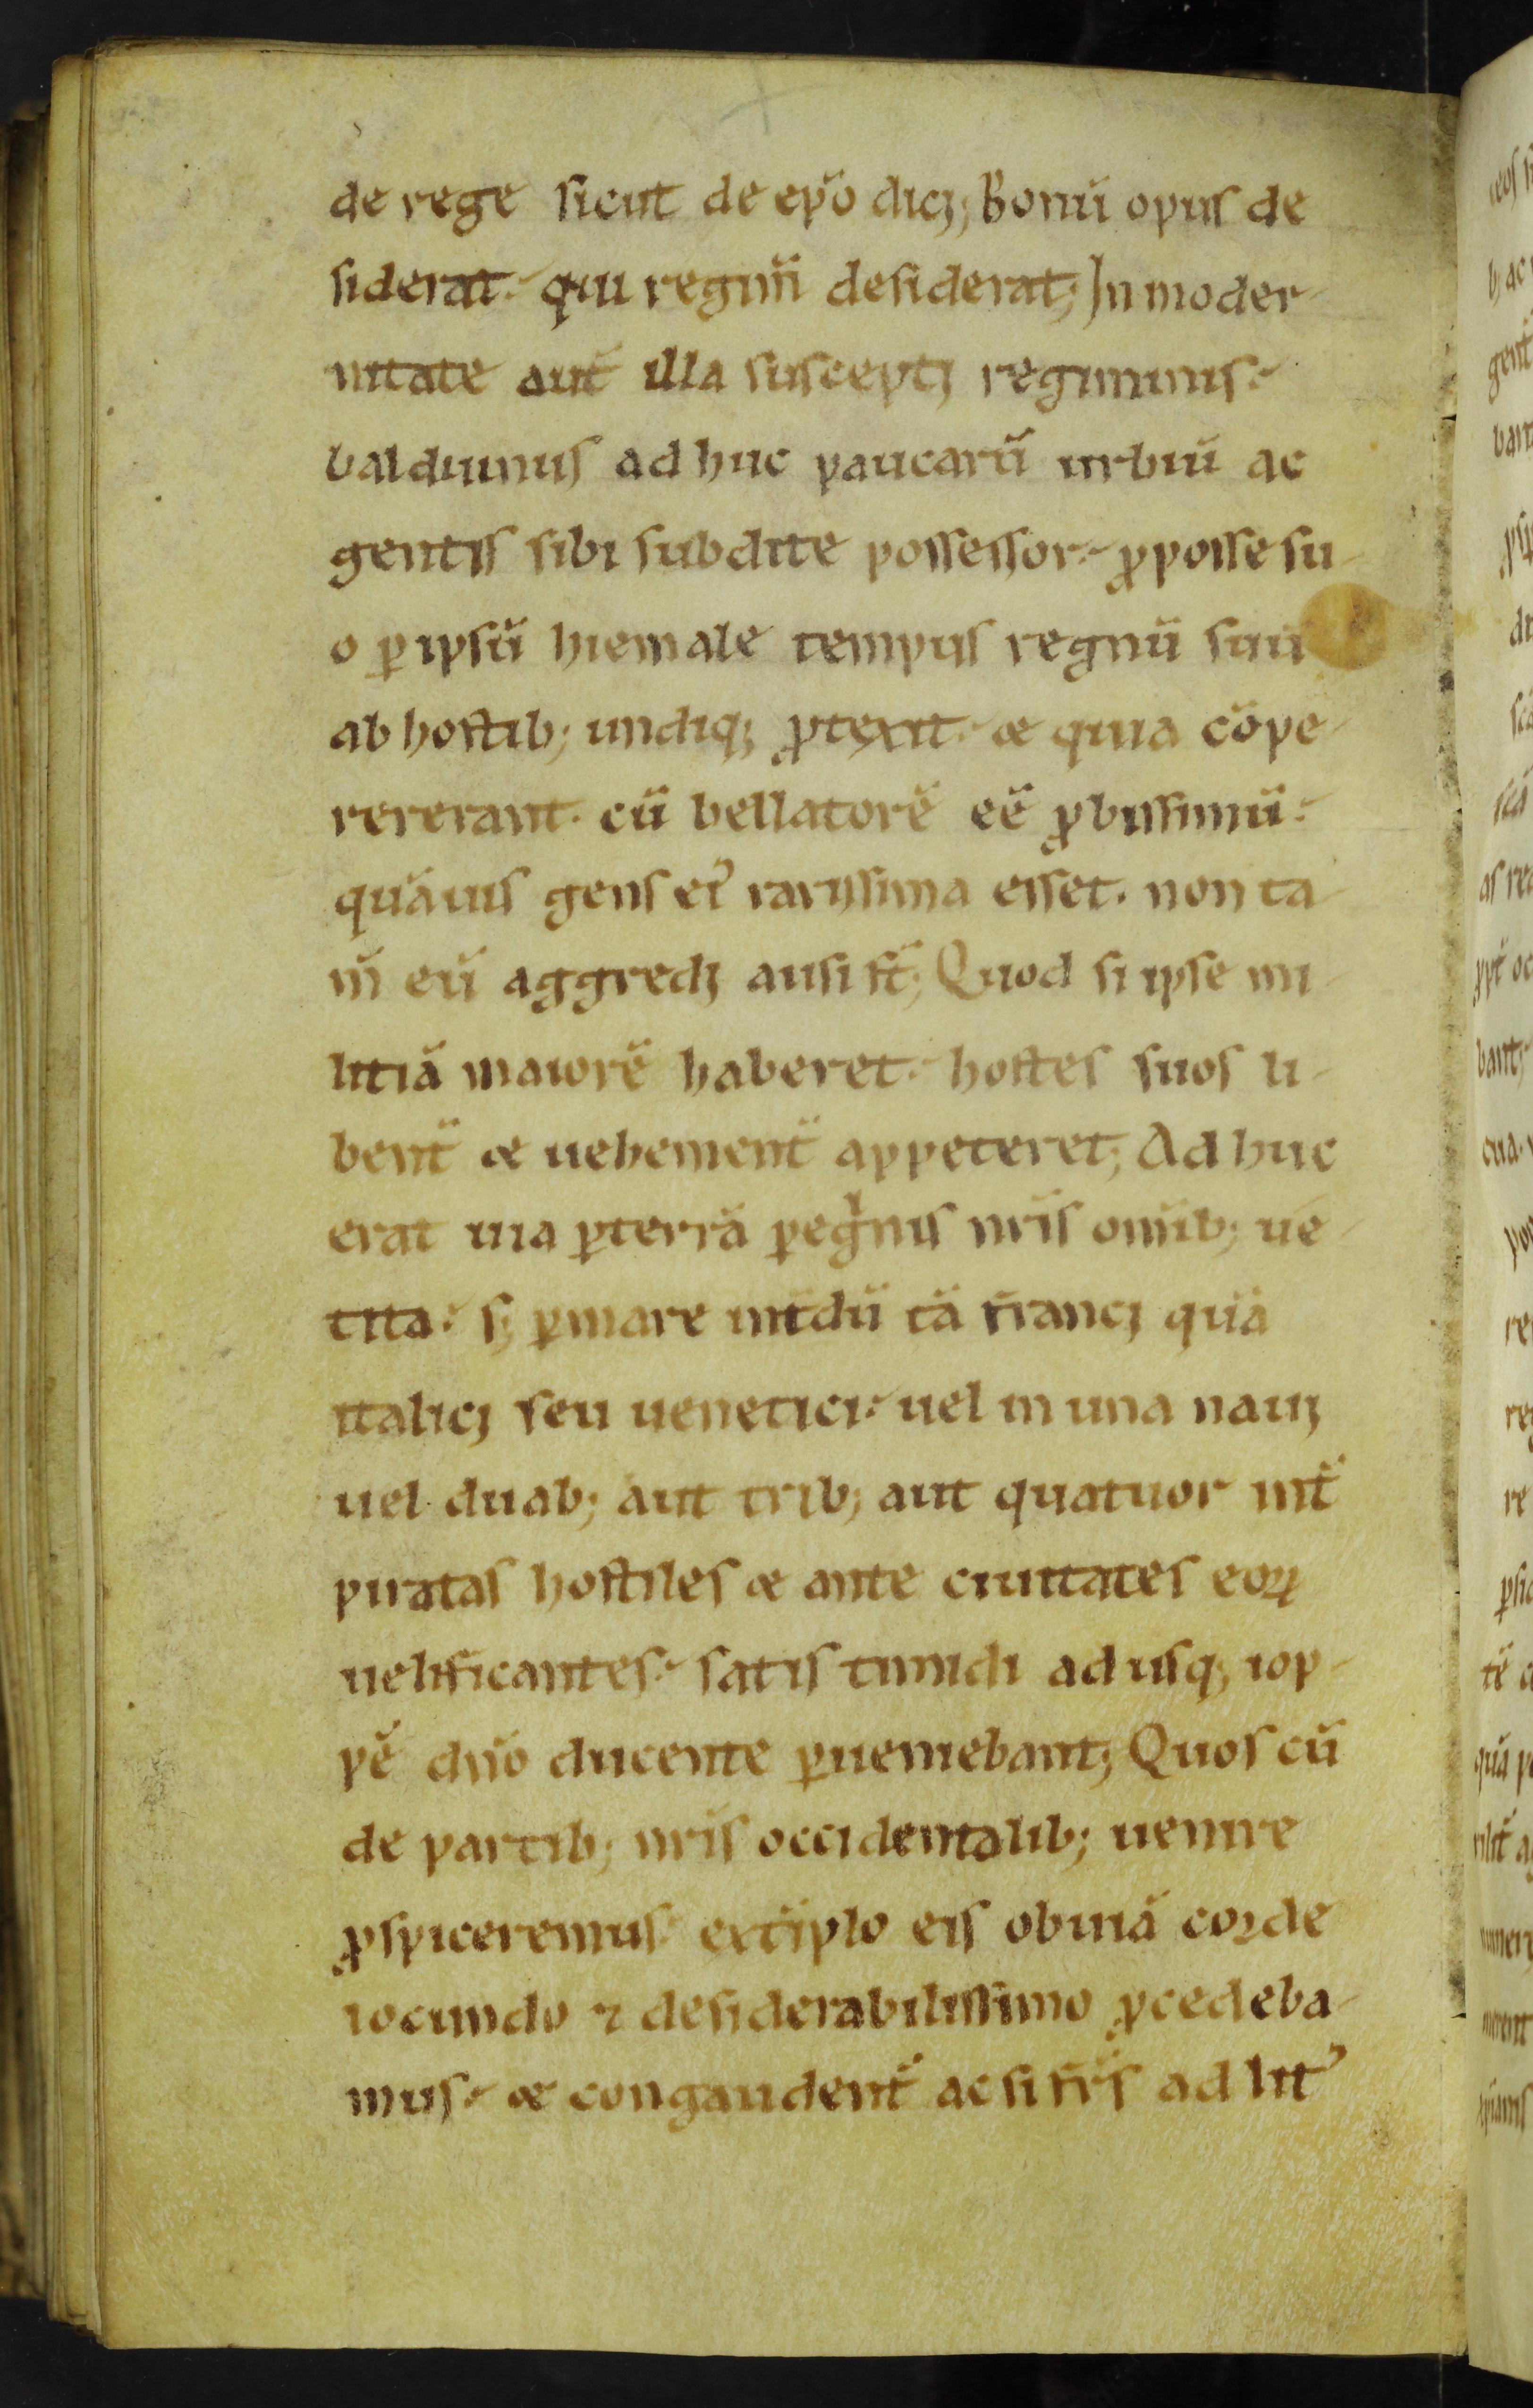 de rege sicut de ep̄o dicꝫ; Bonū opus de
siderat. qui regnū desiderat; In moder
nitate aut̄ illa susceptꝫ regiminis.
balduinus ad huc paucarū urbiū ac
gentis sibi subdite possessor. ꝓ posse su
o ꝑ ipsū hiemale tempus regnū suū
ab hostib; undiq; ꝓtexit. & quia cōpe
rererant. eū bellatorē eē ꝓbissimū.
quāuis gens ei᾽ rarissima esset. non ta
m̄ eū aggredꝫ ausi st̄; Quod si ipse mi
litiā maiorē haberet. hostes suos li
bent̄ & uehement̄ appeteret; Ad huc
erat uia ꝑ terrā ꝑegⁱnis nr̄is om̄ib; ue
tita. sꝫ ꝑ mare int̄dū tā francꝫ quā
italicꝫ seu uenetici. uel in una nauꝫ
uel duab; aut trib; aut quatuor int̄
piratas hostiles & ante ciuitates eoꝝ
uelificantes. satis timidi ad usq; iop
pē dn̄o ducente ꝑueniebant; Quos cū
de partib; nr̄is occidentalib; uenire
ꝓspiceremus. extīplo eis obuiā corde
iocundo ⁊ desiderabilissimo ꝓcedeba
mus. & congaudent̄ ac si fr̄s ad lit᾽